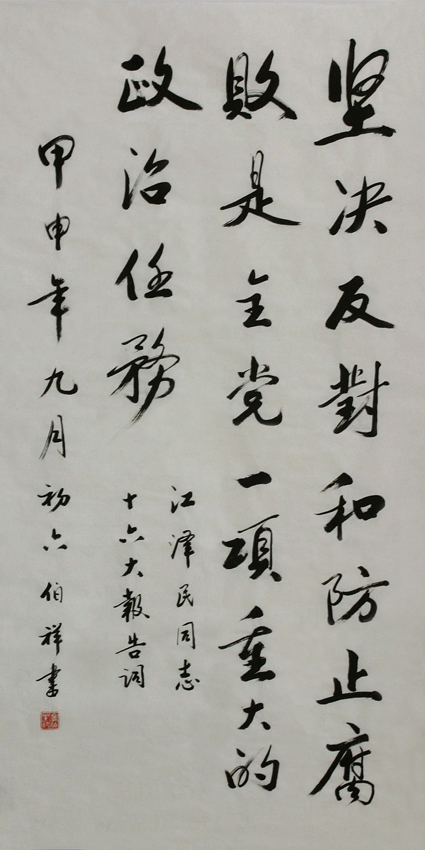 坚决反對和防止腐
敗是全党一项重大的
政治任務
江泽民同志
十六大報告词
甲申年九月初六伯祥書